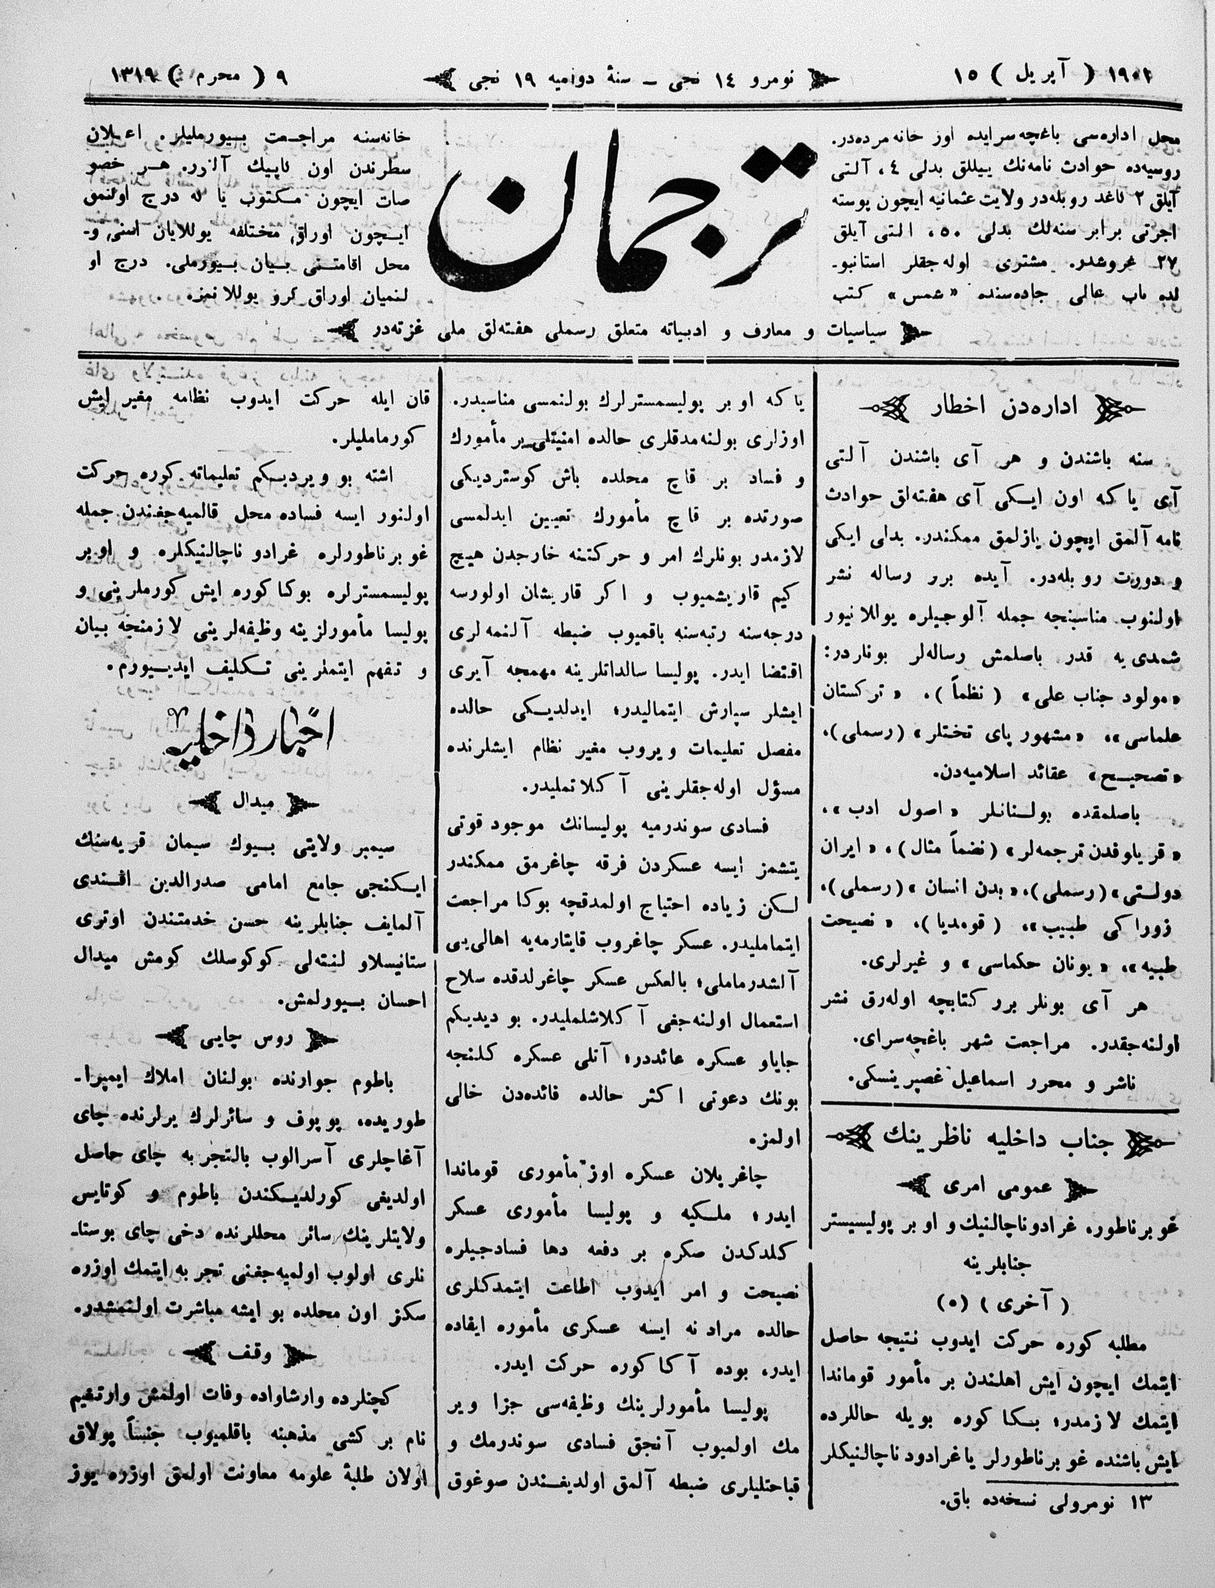 ١٩٠١ ( آپريل ) ١٥
نومرو ١٤ نجى ــ سنۀ دواميه ١٩ نجى
٩ ( محرم ) ١٣١٩
محل اداره‌سى باغچه‌سرايده اوز خانه مزده‌در.
روسيه‌ده حوادث نامه‌نك ييللق بدلى ٤، آلتى
آيلق ٢ كاغد روبله‌در ولايت عثمانيه ايچون پوسته
اجرتى برابر سنه‌لك بدلى ٥٠، التى آيلق
٢٧ غروشدر. مشترى اوله‌جقلر استانبو‌ـ
لده باب عالى جاده‌سنده «شمس» كتب
ترجمان
خانه‌سنه مراجـعت بـيورمليلر. اعـلان
سطرندن اون كاپيك آلنرر. هـر خصو
صات ايچون مـكتوب يا له درج اولنمق
ايـچون اوراق مختلفه يوللايان اسنى وـ
محل اقامتـنى بـيان بـيورملى. درج او
لنميان اوراق كرو يوللانمز.
سياسيات و معارف و ادبياته متعلق رسملى هفته‌لق ملى غزته‌در
اداره‌دن اخطار
سنه باشندن و هر آى باشندن آلتى
آى ياكه اون ايـكى آى هفته‌لق حوادث
نامه آلمق ايچون يازلمق ممكندر. بدلى ايكى
و دورت روبله‌در. آيده برر رساله نشر
اولنوب مناسبنجه جمله آلوجيلره يوللانيور
شمدى‌يه قدر باصلمش رساله‌لر بونلردر:
«مولود جناب على» ( نظماً )، «تركستان
علماسى»، «مشهور پاى تختلر» (رسملى)،
«تصحيـح» عقائد اسلاميه‌دن.
باصلمقده بولـنانلر «اصول ادب»،
«قريلوفدن ترجمه‌لر» (نضماً مثال)، «ايران
دولـتى» (رسملى)، «بدن انسان» (رسملى)،
زوراكى طبيب»، ( قومديا )، «نصيحت
طبيه»، «يونان حكماسى» و غيرلرى.
هر آى بونلر برر كتابچه اوله‌رق نشر
اولنه‌جقدر. مراجعت شهر باغچه‌سراى.
ناشر و محرر اسماعيل غصپرينسكى.
جناب داخليه ناظرينك
عمومى امرى
غوبرناطور، غرادوناچالنيك و اوبر پوليسيستر
جنابلرينه
( آخرى ) (٥)
مطلبه كوره حركت ايدوب نتيجه حاصل
ايتمك ايچون ايش اهلندن بر مأمور قوماندا
ايتمك لازمدر؛ بـكا كوره بويله حاللرده
ايش باشنده غوبرناطورلر يا غرادود ناچالنيكلر
١٣ نومرولى نسخه‌ده باق.
ياكه اوبر پوليسمسترلرك بولنمسى مناسبدر.
اوزلرى بولنه‌مدقلرى حالده امنيتلى بر مأمورك
و فساد بر قاچ محلده باش كوستردیكى
صورتده بر قاچ مأمورك تعيين ايدلمسى
لازمدر بونلرك امر و حركتنه خارجدن هيچ
كيم قاريشميوب و اكر قاريشان اولورسه
درجه‌سنه رتبه‌سنه باقميوب ضبطه آلنمه‌لرى
اقتضا ايدر. پوليسا سالداتلرينه مهمجه آيرى
ايشلر سپارش ايتماليدر؛ ايدلديـكى حالده
مفصل تعليمات ويروب مغير نظام ايشلرنده
مسؤل اوله‌جقلرينى آكلاتمليدر.
فسادى سوندرميه پوليسانك موجود قوتى
يتشمز ايسه عسكردن فرقه چاغرمق ممكندر
لـكن زياده احتياج اولمدقچه بوكا مراجعت
ايتمامليدر. عسكر چاغروب قايتارمه‌يه اهالى‌يى
آلشدرماملى؛ بالعكس عسكر چاغرلدقده سلاح
استعمال اولنه‌جغى آكلاشلمليدر. بو ديديكم
جاياو عسكره عائددر؛ آتلى عسكره كلنجه
بونك دعوتى اكثر حالده فائده‌دن خالى
اولمز.
چاغريلان عسكره اوز مأمورى قوماندا
ايدر؛ ملـكيه و پوليسا مأمورى عسكر
كـلدكدن صكره بر دفعه دها فسادجيلره
نصيحت و امر ايدوب اطاعت ايتمدكلرى
حالده مراد نه ايسه عسكرى مأموره ايفاده
ايدر، بوده آكا كوره حركت ايدر.
پوليسا مأمورلرينك وظيفه‌سى جزا وير
مك اولميوب آنجق فسادى سوندرمك و
قباحتليلرى ضبطه آلمق اولديغـندن صوغوق
قان ايله حركت ايدوب نظامه مغير ايش
كورمامليلر.
اشته بو ويرديـكم تعليماته كوره حركت
اولنور ايسه فساده محل قالميه‌جغندن جمله
غوبرناطورلره غرادوناچالنيكلره و اوبر
پوليسمسترلره بوكا كوره ايش كورملرينى و
پوليسا مأمورلرينه وظيفه‌لرينى لازمنجه بيان
و تفهم ايتملرينى تـكليف ايديـيورم.
اخبار داخليه
ميدال
سيمبر ولايتى بـيوك سيمان قريه‌سنك
ايـكنجى جامع امامى صدرالدين افـندى
آلمايف جنابلرينه حسن خدمتندن اوترى
ستانيسلاو لنته‌لى كوكوسلك كومش ميدال
احسان بـيورلمش.
روس چايى
باطوم جوارنده بولنان املاك ايمپرا‌ـ
طوريده، پوپوف و سائرلرك يرلرنده چاى
آغاچلرى آسرالوب بالتجربه چاى حاصل
اولديغى كورلديـكندن باطوم و كوتايس
ولايتلرينك سائر محللرنده دخى چاى بوستا‌ـ
نلرى اولوب اولميه‌جغنى تجربه ايتمك اوزره
سكز اون محلده بو ايشه مباشرت اولنمشدر.
وقف
كچنلرده وارشاواده وفات اولمش وارتـقيم
نام بر كشى مذهبنه باقلميوب جنساً پولاق
اولان طلبۀ علومه معاونت اولمق اوزره يوز